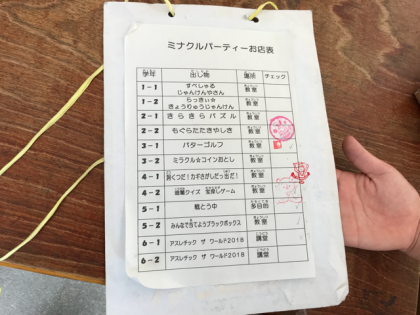 ミナクルパーティーお店表
学年 出し物 場所 チェック
1-1 すぺしゃる じゃんけんやさん 教室
1-2 らっきぃ☆ きょうりゅうじゃんけん 教室
2-1 きらきらパズル 教室
2-2 もぐらたたきやしき 教室
3-1 パターゴルフ 教室
3-2 ミラクル☆コインおとし 教室
4-1 カギさがしだっ出だ! 教室
4-2 クイズ 宝探しゲーム 教室
5-1 戦とう中 多目的
5-2 みんなで当てようブラックボックス 教室
6-1 アスレチック ザ ワールド2018 講堂
6-2 アスレチック ザ ワールド2018 講堂